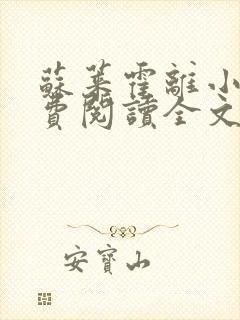 蘇菜霍離小
費閱讀全文
安寶山